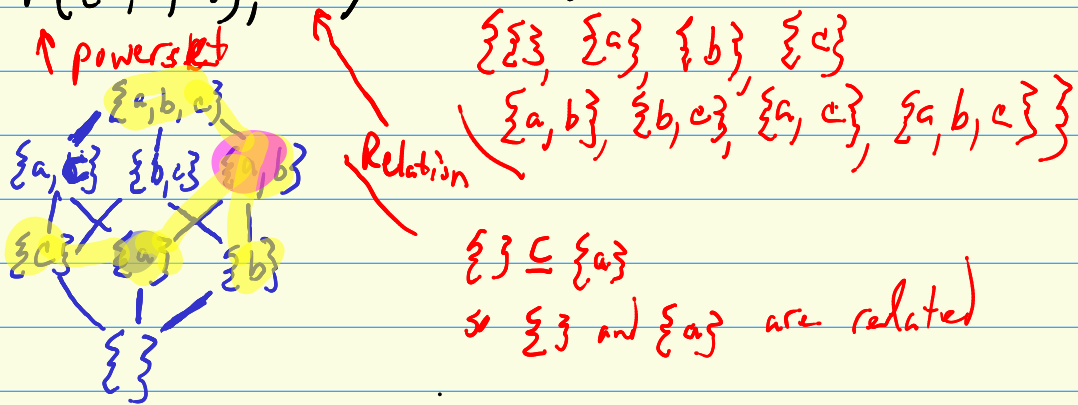 powerset
{{}, {a}, {b}, {c}
{a, b}, {b, c}, {a, c}, {a, b, c}}
Relation
{a, b, c}
{a, c} {b, c} {a, b}
{c} {a} {b}
{ }
{ } ⊆ {a}
so { } and {a} are related